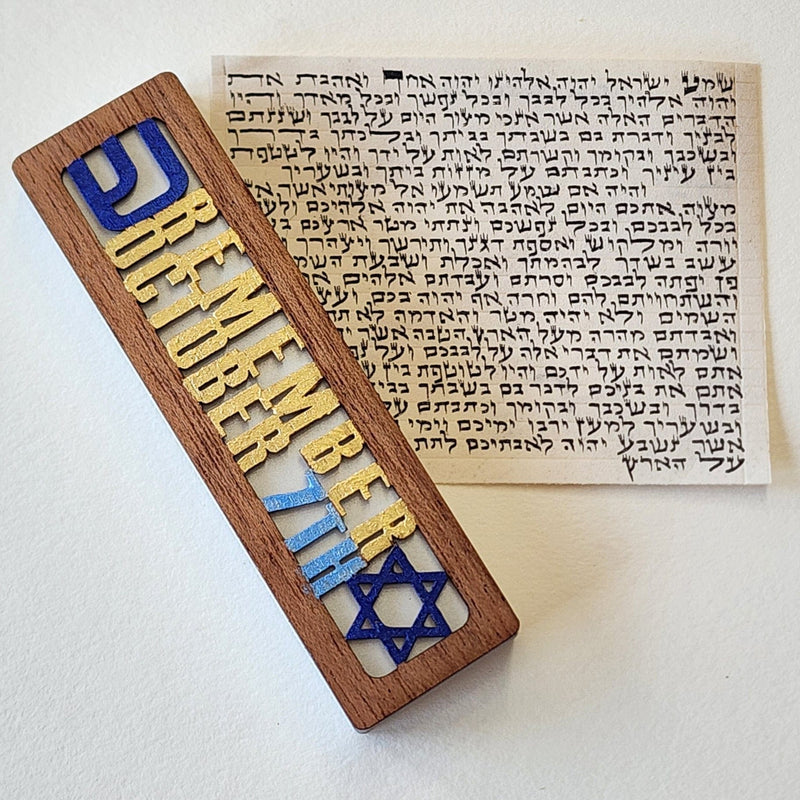 REMEMBER
OCTOBER
7TH
ש
שמע ישראל יהוה אלהינו יהוה אחד ואהבת את
יהוה אלהיך בכל לבבך ובכל נפשך ובכל מאדך והיו
הדברים האלה אשר אנכי מצוך היום על לבבך ושננתם
לבניך ודברת בם בשבתך בביתך ובלכתך בדרך
ובשכבך ובקומך וקשרתם לאות על ידך והיו לטטפת
בין עיניך וכתבתם על מזזות ביתך ובשעריך
והיה אם שמע תשמעו אל מצותי אשר
מצוה אתכם היום לאהבה את יהוה אלהיכם
בכל לבבכם ובכל נפשכם ונתתי מטר ארצכם
יורה ומלקוש ואספת דגנך ותירשך ויצהרך
עשב בשדך לבהמתך ואכלת ושבעת
פן יפתה לבבכם וסרתם ועבדתם אלהים
והשתחויתם להם וחרה אף יהוה בכם
השמים ולא יהיה מטר והאדמה לא
ואבדתם מהרה מעל הארץ הטבה אשר
ושמתם את דברי אלה על לבבכם ועל
אתם לאות על ידכם והיו לטוטפת בין
אתם את בניכם לדבר בם בשבתך
בדרך ובשכבך ובקומך וכתבתם
ובשעריך למען ירבו ימיכם וימי
אשר נשבע יהוה לאבתיכם לתת
על הארץ